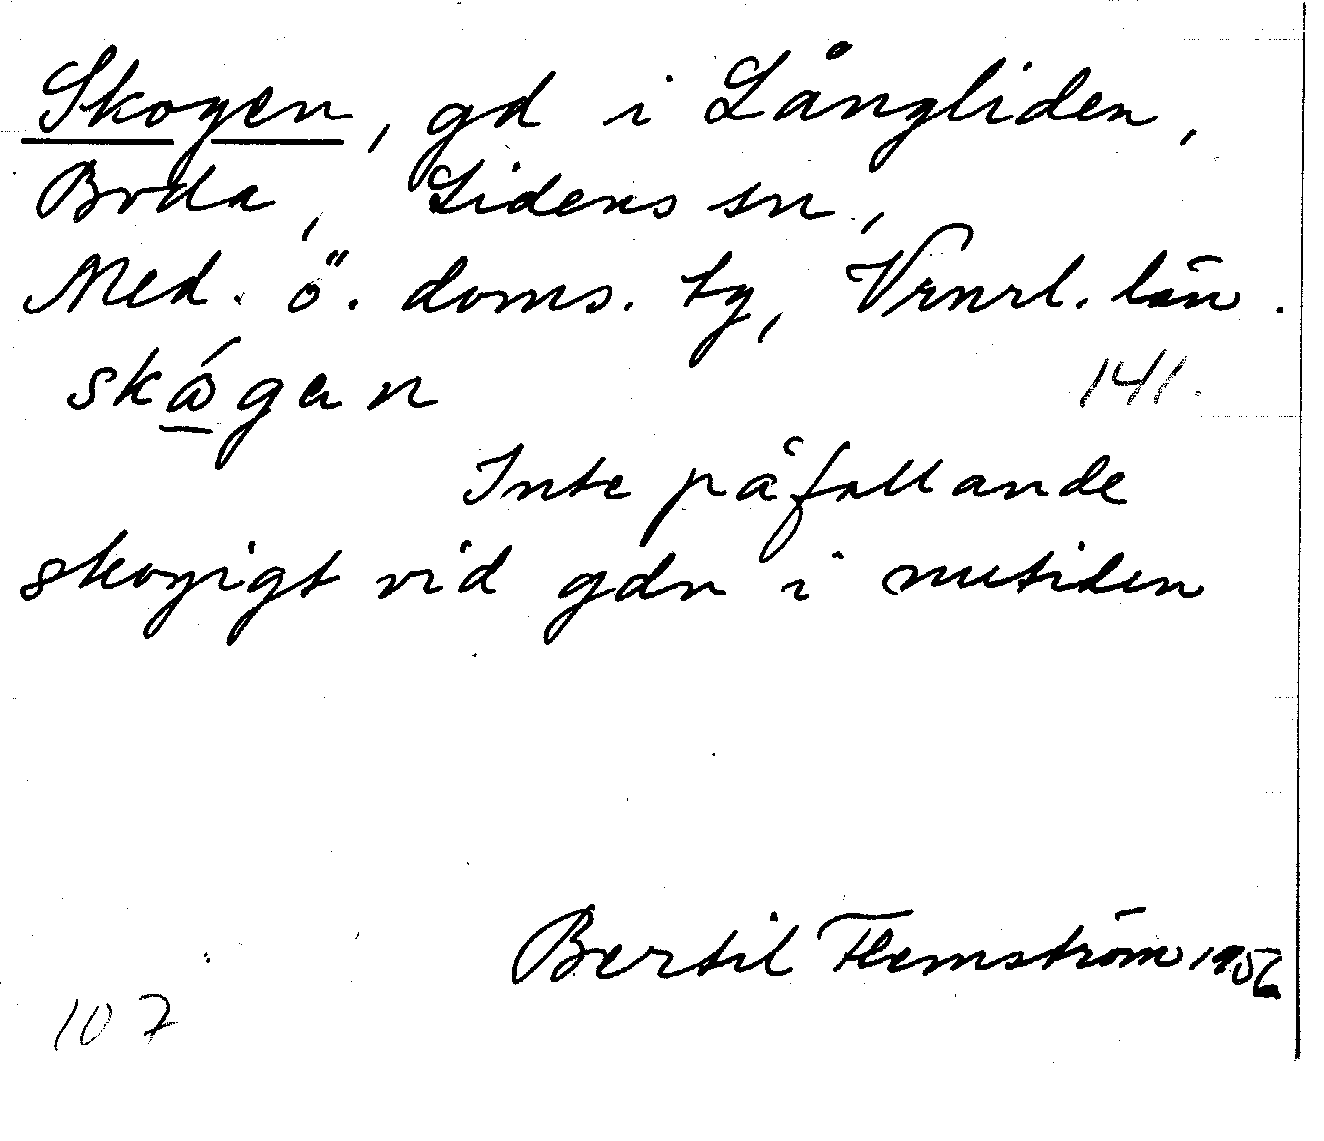 Skogen, gd i Långliden,
Boda, Lidens sn,
Med. ö. doms. tg, Vrnrl. län.
skógan 141.
Inte påfallande
skogigt vid gdn i nutiden
Bertil Flemström 1956
107